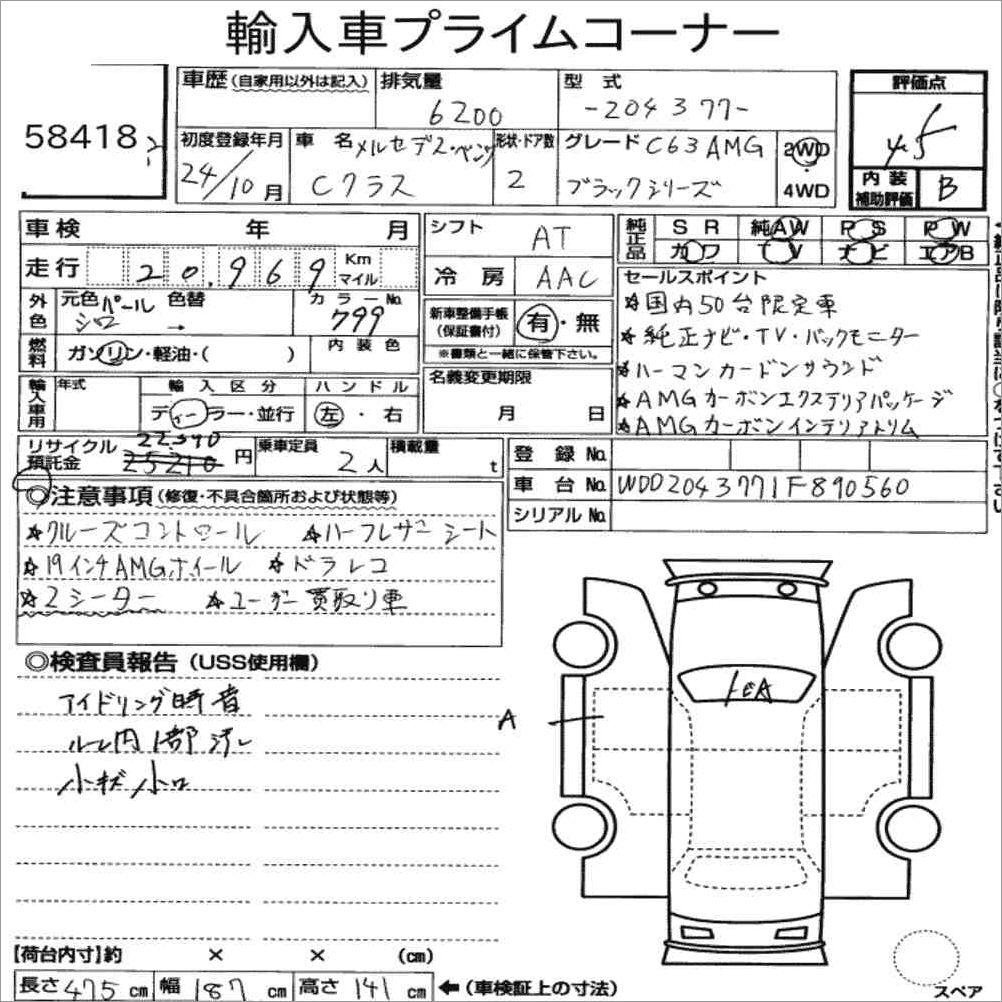 輸入車プライムコーナー
58418
車歴(自家用以外は記入) 排気量 6200 型式 -204377- 評価点 4.5
初度登録年月 24/10月 車名 メルセデス・ベンツ Cクラス 形状・ドア数 2 グレード C63AMG ブラックシリーズ 2WD 4WD 内装補助評価 B
車検 年 月
走行 20,969 Km マイル
外色 元色 パールシロ 色替 → カラーNo. 799
燃料 ガソリン・軽油・( ) 内装色
シフト AT
冷房 AAC
新車整備手帳(保証書付) 有・無
※書類と一緒に保管下さい。
名義変更期限 月 日
純正品 SR 純AW PS PW
カワ TV ナビ エアB
セールスポイント
☆国内50台限定車
★純正ナビ・TV・バックモニター
★ハーマンカードンサウンド
★AMGカーボンエクステリアパッケージ
★AMGカーボンインテリアトリム
輸入車用 年式 輸入区分 ディーラー・並行 ハンドル 左・右
リサイクル預託金 22590 25210 円 乗車定員 2人 積載量 t
登録No.
車台No. WDD2043771F890560
シリアルNo.
◎注意事項(修復・不具合箇所および状態等)
☆クルーズコントロール ☆ハーフレザーシート
☆19インチAMGホイール ☆ドラレコ
☆2シーター ☆ユーザー買取り車
◎検査員報告(USS使用欄)
アイドリング時音
ルーム内1部汚レ
小キズ小凹
A
【荷台内寸】約 × × (cm)
長さ475cm 幅187cm 高さ141cm ←(車検証上の寸法)
スペア